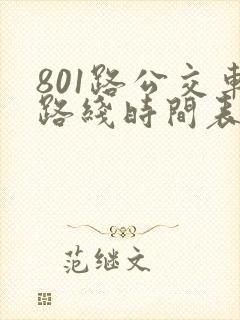 801路公交車
路綫時間表
范继文